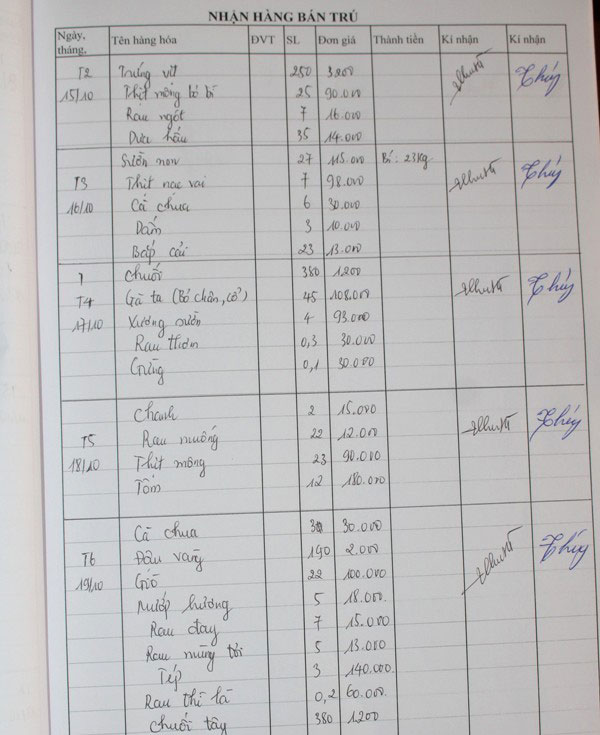 NHẬN HÀNG BÁN TRÚ
Ngày, tháng, Tên hàng hóa ĐVT SL Đơn giá Thành tiền Kí nhận Kí nhận
T2 Trứng vịt 250 3200
15/10 Thịt mông bỏ bì 25 90.000 Thúy
Rau ngót 7 16.000
Dưa hấu 35 14.000
Sườn non 27 115.000 Bí: 23kg
T3 Thịt nạc vai 7 98.000 Thúy
16/10 Cà chua 6 30.000
Dấm 3 10.000
Bắp cải 23 13.000
Chuối 380 1.200
T4 Gà ta (Bỏ chân, cổ) 45 108.000 Thúy
17/10 Xương sườn 4 93.000
Rau thơm 0,3 30.000
Gừng 0,1 30.000
Chanh 2 15.000
T5 Rau muống 22 12.000 Thúy
18/10 Thịt mông 23 90.000
Tôm 12 180.000
Cà chua 30.000
T6 Đậu vàng 190 2.000 Thúy
19/10 Giò 22 100.000
Mướp hương 5 18.000
Rau đay 7 15.000
Rau mùng tơi 5 13.000
Tép 3 140.000
Rau thì là 0,2 60.000
Chuối tây 380 1,200